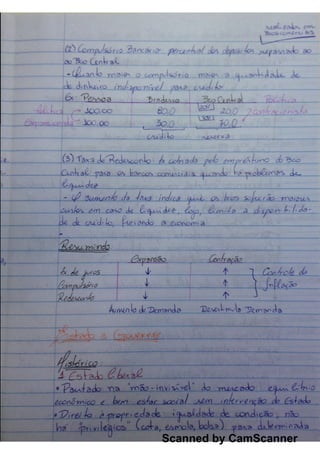 (2) Compulsório Bancário: percentual dos depósitos repassado ao
ao Bco Central
- Quanto maior o compulsório maior a quantidade de
de dinheiro indisponível para crédito
Ex: Pessoa Bradesco Bco Central Política
Política - 100,00 80 20,0 Contracionista
Expansionista 100,00 30,0 70,0
crédito reserva
(3) Taxa de Redesconto: tx cobrada pelo empréstimo do Bco
Central para os bancos comerciais quando há problemas de
liquidez
- O aumento da taxa indica que os bcos sofrerão maiores
custos em caso de liquidez, logo, limita a disponibilida-
de de crédito, freiando a economia
Resumindo
Expansão Contração
tx. de juros ↓ ↑ Controle da
Compulsório ↓ ↑ Inflação
Redesconto ↓ ↑
Aumento de Demanda Desestimula Demanda
Estado e Governo
Histórico:
1 Estado Liberal
• Pautado na "mão-invisível" do mercado equilíbrio
econômico e bem estar social sem intervenção do Estado
• Direito à propriedade, igualdade de condição, não
há "privilégios" (cota, esmola, bolsa) para determinada
Scanned by CamScanner